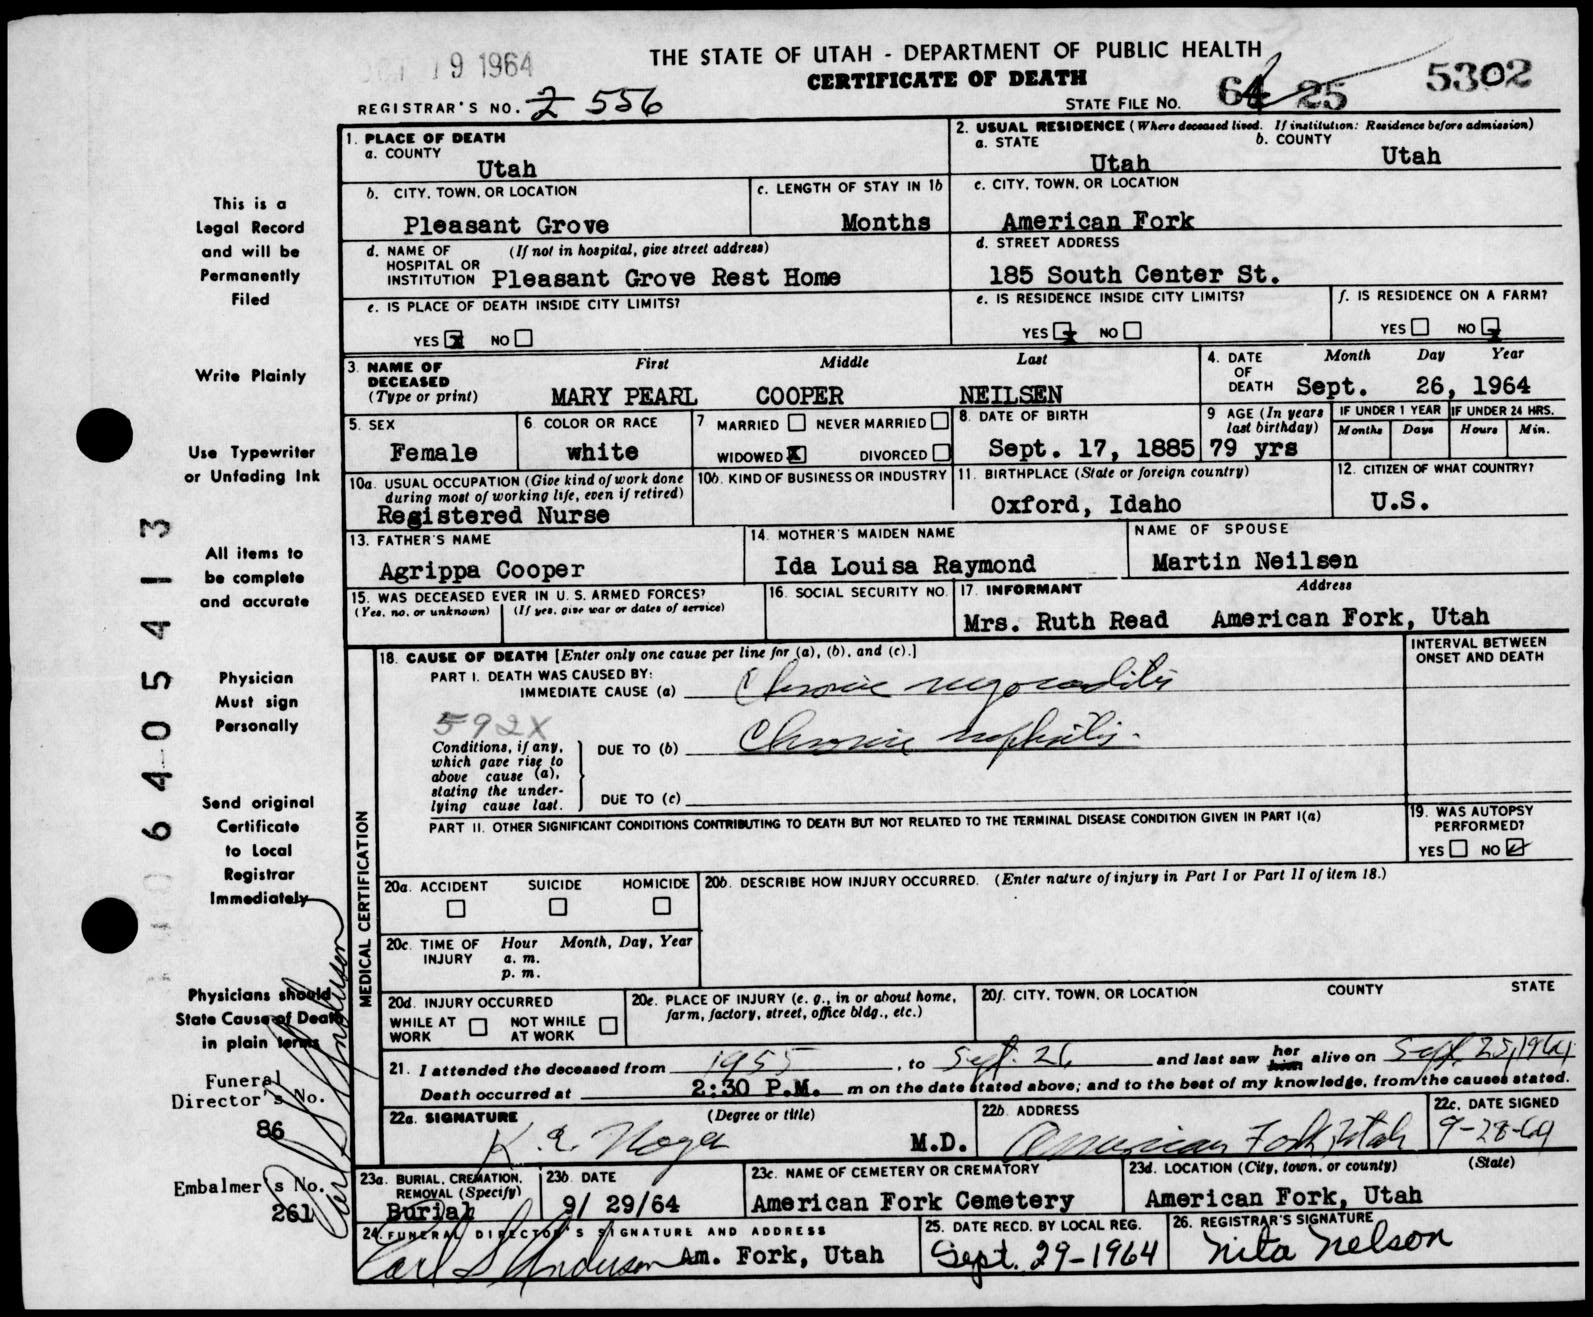 OCT 19 1964
THE STATE OF UTAH - DEPARTMENT OF PUBLIC HEALTH
CERTIFICATE OF DEATH
REGISTRAR'S NO. 2 556
STATE FILE NO. 64 25 5302
This is a
Legal Record
and will be
Permanently
Filed
Write Plainly
Use Typewriter
or Unfading Ink
All items to
be complete
and accurate
Physician
Must sign
Personally
Send original
Certificate
to Local
Registrar
Immediately
Physicians should
State Cause of Death
in plain terms
Funeral
Director's No.
86
Embalmer's No.
261
Carl S Anderson
064-05413
1. PLACE OF DEATH
a. COUNTY
Utah
2. USUAL RESIDENCE (Where deceased lived. If institution: Residence before admission)
a. STATE
Utah
b. COUNTY
Utah
b. CITY, TOWN, OR LOCATION
Pleasant Grove
c. LENGTH OF STAY IN 1b
Months
c. CITY, TOWN, OR LOCATION
American Fork
d. NAME OF HOSPITAL OR INSTITUTION (If not in hospital, give street address)
Pleasant Grove Rest Home
d. STREET ADDRESS
185 South Center St.
e. IS PLACE OF DEATH INSIDE CITY LIMITS?
YES x NO
e. IS RESIDENCE INSIDE CITY LIMITS?
YES x NO
f. IS RESIDENCE ON A FARM?
YES NO x
3. NAME OF DECEASED (Type or print)
First Middle Last
MARY PEARL COOPER NEILSEN
4. DATE OF DEATH Month Day Year
Sept. 26, 1964
5. SEX
Female
6. COLOR OR RACE
white
7 MARRIED NEVER MARRIED
WIDOWED X DIVORCED
8. DATE OF BIRTH
Sept. 17, 1885
9 AGE (In years last birthday)
79 yrs
IF UNDER 1 YEAR
Months Days
IF UNDER 24 HRS.
Hours Min.
10a. USUAL OCCUPATION (Give kind of work done during most of working life, even if retired)
Registered Nurse
10b. KIND OF BUSINESS OR INDUSTRY
11. BIRTHPLACE (State or foreign country)
Oxford, Idaho
12. CITIZEN OF WHAT COUNTRY?
U.S.
13. FATHER'S NAME
Agrippa Cooper
14. MOTHER'S MAIDEN NAME
Ida Louisa Raymond
NAME OF SPOUSE
Martin Neilsen
15. WAS DECEASED EVER IN U. S. ARMED FORCES?
(Yes, no, or unknown) (If yes, give war or dates of service)
16. SOCIAL SECURITY NO.
17. INFORMANT Address
Mrs. Ruth Read American Fork, Utah
MEDICAL CERTIFICATION
18. CAUSE OF DEATH [Enter only one cause per line for (a), (b), and (c).]
INTERVAL BETWEEN ONSET AND DEATH
PART I. DEATH WAS CAUSED BY:
IMMEDIATE CAUSE (a) Chronic myocarditis
592X
Conditions, if any, which gave rise to above cause (a), stating the underlying cause last.
DUE TO (b) Chronic nephritis.
DUE TO (c)
PART II. OTHER SIGNIFICANT CONDITIONS CONTRIBUTING TO DEATH BUT NOT RELATED TO THE TERMINAL DISEASE CONDITION GIVEN IN PART I(a)
19. WAS AUTOPSY PERFORMED?
YES NO ✓
20a. ACCIDENT SUICIDE HOMICIDE
20b. DESCRIBE HOW INJURY OCCURRED. (Enter nature of injury in Part I or Part II of item 18.)
20c. TIME OF INJURY Hour Month, Day, Year
a. m.
p. m.
20d. INJURY OCCURRED
WHILE AT WORK NOT WHILE AT WORK
20e. PLACE OF INJURY (e. g., in or about home, farm, factory, street, office bldg., etc.)
20f. CITY, TOWN, OR LOCATION COUNTY STATE
21. I attended the deceased from 1955, to Sept. 26 and last saw her him alive on Sept. 25, 1964.
Death occurred at 2:30 P.M. m on the date stated above; and to the best of my knowledge, from the causes stated.
22a. SIGNATURE (Degree or title)
K. E. M.D.
22b. ADDRESS
American Fork, Utah
22c. DATE SIGNED
9-28-64
23a. BURIAL, CREMATION, REMOVAL (Specify)
Burial
23b. DATE
9/ 29/64
23c. NAME OF CEMETERY OR CREMATORY
American Fork Cemetery
23d. LOCATION (City, town, or county) (State)
American Fork, Utah
24. FUNERAL DIRECTOR'S SIGNATURE AND ADDRESS
Carl S Anderson Am. Fork, Utah
25. DATE RECD. BY LOCAL REG.
Sept. 29-1964
26. REGISTRAR'S SIGNATURE
Nita Nelson